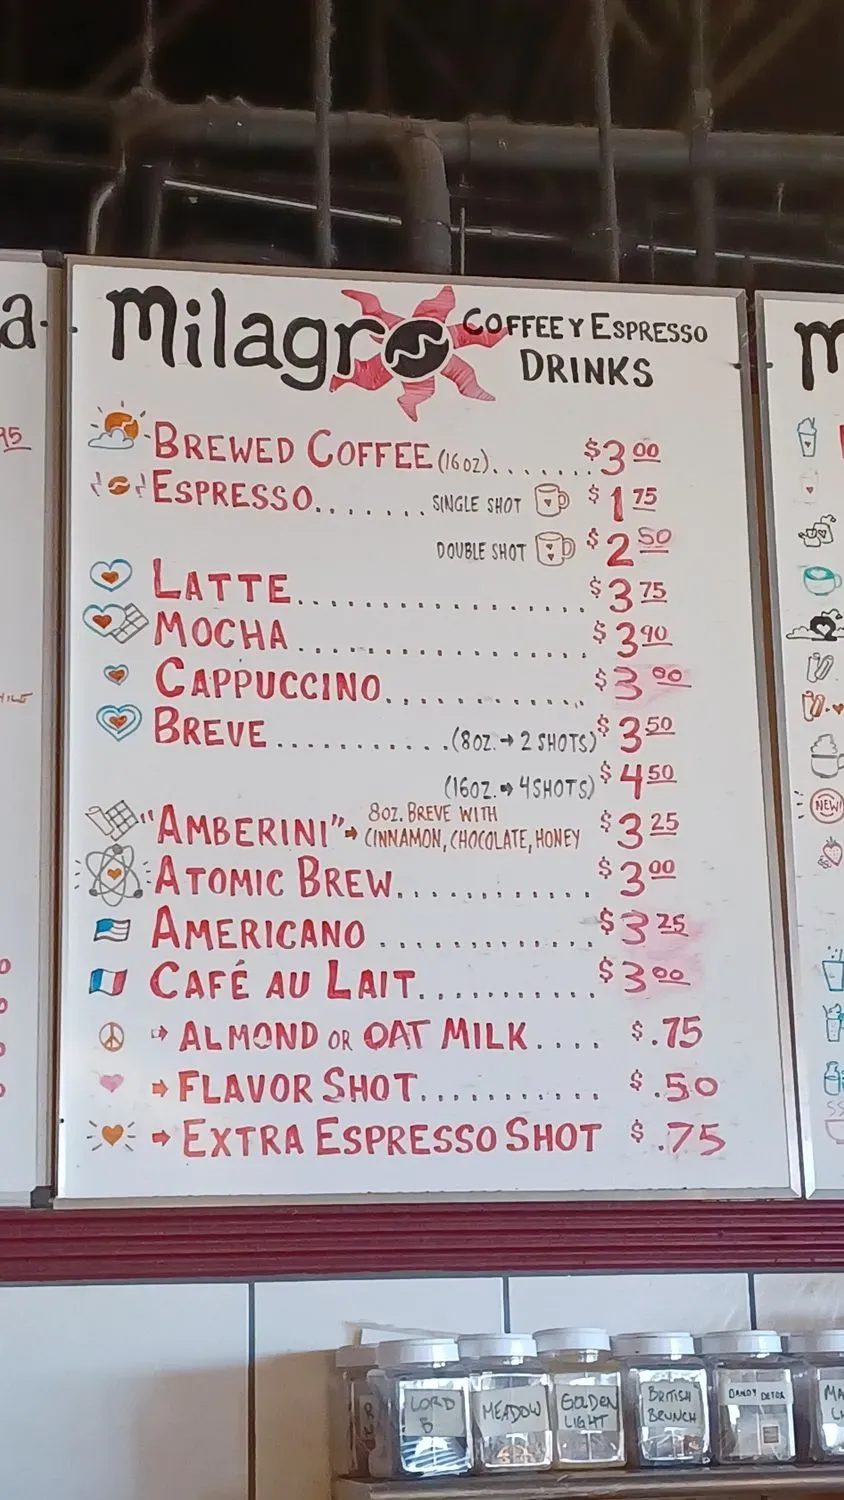 a
95
Milagro COFFEE Y ESPRESSO
DRINKS
BREWED COFFEE (16 oz)...... $3 00
ESPRESSO....... SINGLE SHOT $1 75
DOUBLE SHOT $2 50
LATTE................. $3 75
MOCHA................. $3 90
CAPPUCCINO............ $3 00
BREVE...........(8OZ.→2 SHOTS) $3 50
(16OZ.→4SHOTS) $4 50
"AMBERINI"→ 8OZ. BREVE WITH $3 25
CINNAMON, CHOCOLATE, HONEY
ATOMIC BREW............ $3 00
AMERICANO............. $3 25
CAFÉ AU LAIT........... $3 00
→ ALMOND OR OAT MILK.... $.75
→ FLAVOR SHOT........... $.50
→ EXTRA ESPRESSO SHOT $.75
NEW!
LORD
B
MEADOW
GOLDEN
LIGHT
BRITISH
BRUNCH
DANDY DETOX
MA